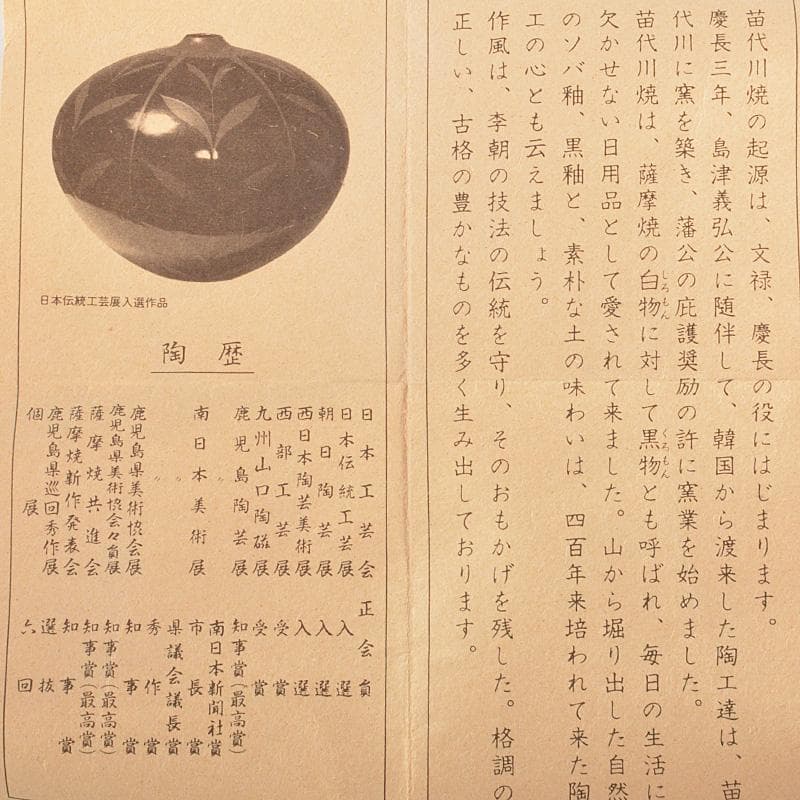 苗代川焼の起源は、文禄、慶長の役にはじまります。
慶長三年、島津義弘公に随伴して、韓国から渡来した陶工達は、苗
代川に窯を築き、藩公の庇護奨励の許に窯業を始めました。
苗代川焼は、薩摩焼の白物しろもんに対して黒物くろもんとも呼ばれ、毎日の生活に
欠かせない日用品として愛されて来ました。山から堀り出した自然
のソバ釉、黒釉と、素朴な土の味わいは、四百年来培われて来た陶
工の心とも云えましょう。
作風は、李朝の技法の伝統を守り、そのおもかげを残した。格調の
正しい、古格の豊かなものを多く生み出しております。
日本伝統工芸展入選作品
陶歴
日本工芸会 正会員
日本伝統工芸展 入選
朝日陶芸展 入選
西日本陶芸美術展 入選
西部工芸展 受賞
九州山口陶磁展 受賞
鹿児島陶芸展 知事賞(最高賞)
〃 南日本新聞社賞
南日本美術展 市長賞
〃 県議会議長賞
〃 秀作賞
鹿児島県美術協会展 知事賞
鹿児島県美術協会々員展 知事賞(最高賞)
薩摩焼共進会 知事賞(最高賞)
薩摩焼新作発表会 知事賞
鹿児島県巡回秀作展 選抜
個展 六回